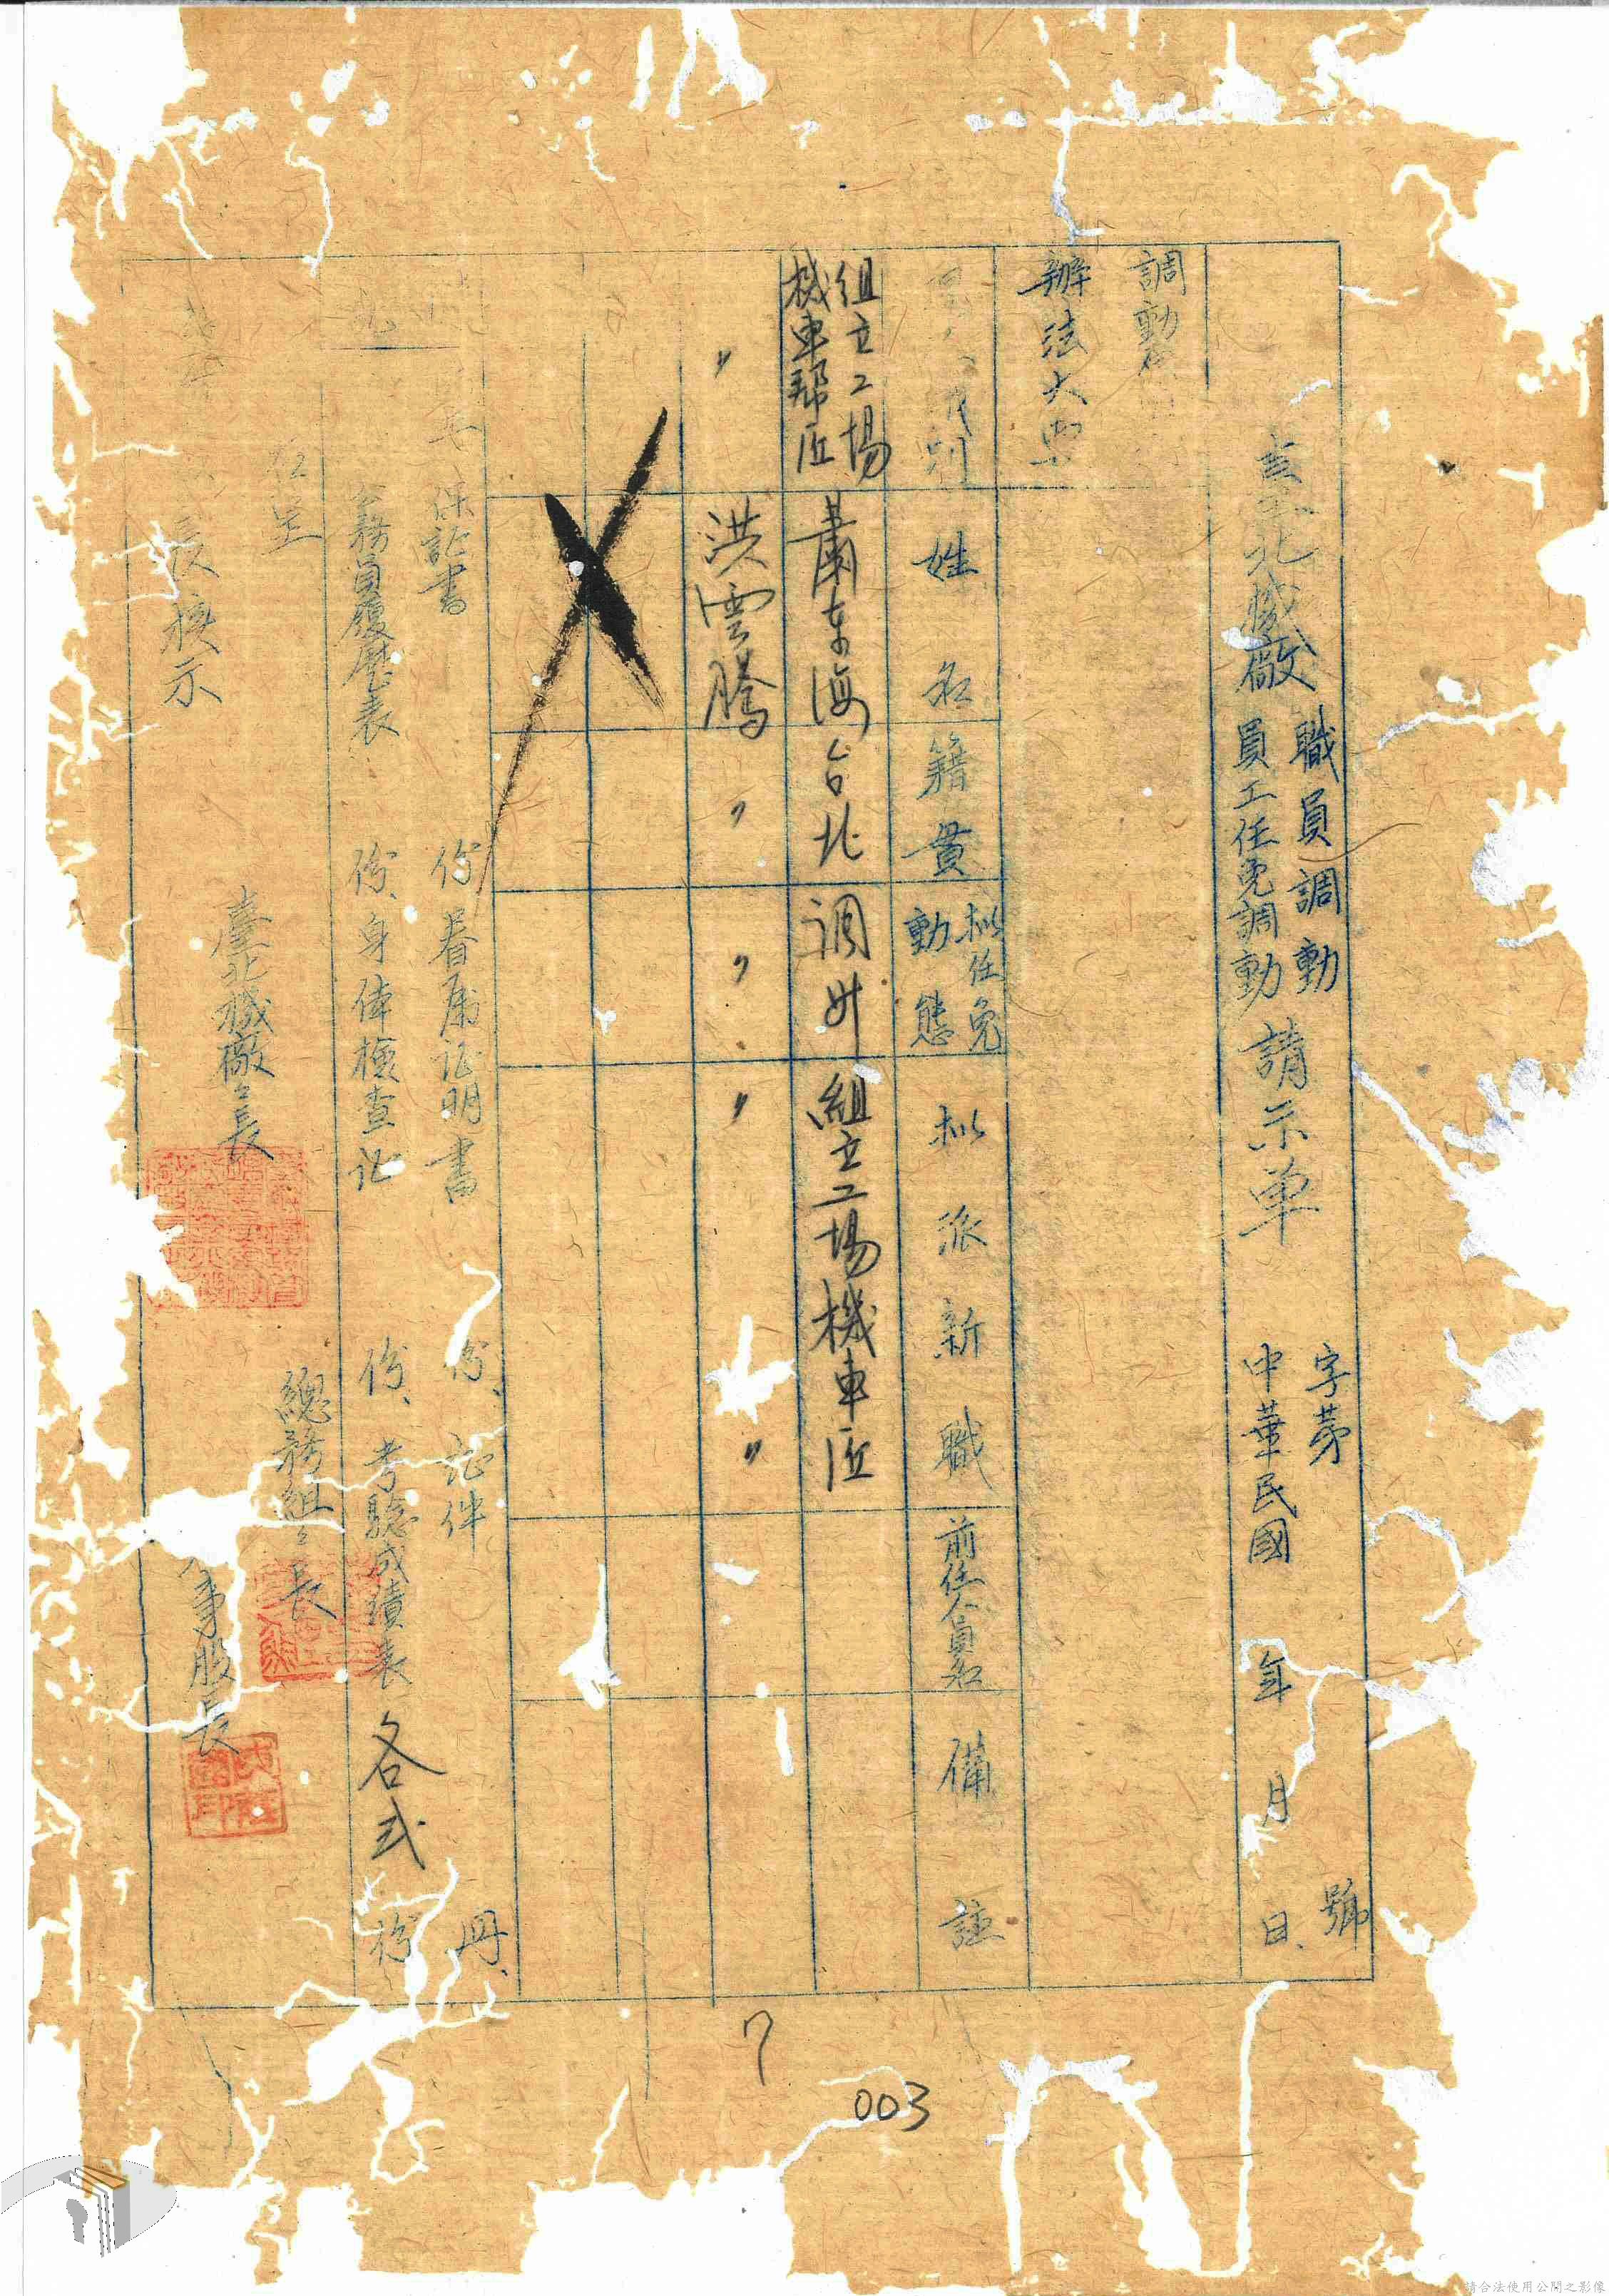 臺北機廠
職員調動
員工任免調動
請示單
字第 號
中華民國 年 月 日
調動
辦法大要
別
姓名
籍貫
拟任免
動態
拟派新職
前任人員名
備註
組立工場
機車帮匠
蕭東海
台北
調升
組立工場機車匠
〃
洪雲騰
〃
〃
〃
〃
保証書 份眷屬证明書 份、证件 冊、
公務員履歷表 份、身体檢查证 份、考驗成績表各弍份
右呈
長核示
臺北機廠長
總務組長
人事股長
7
003
請合法使用公開之影像